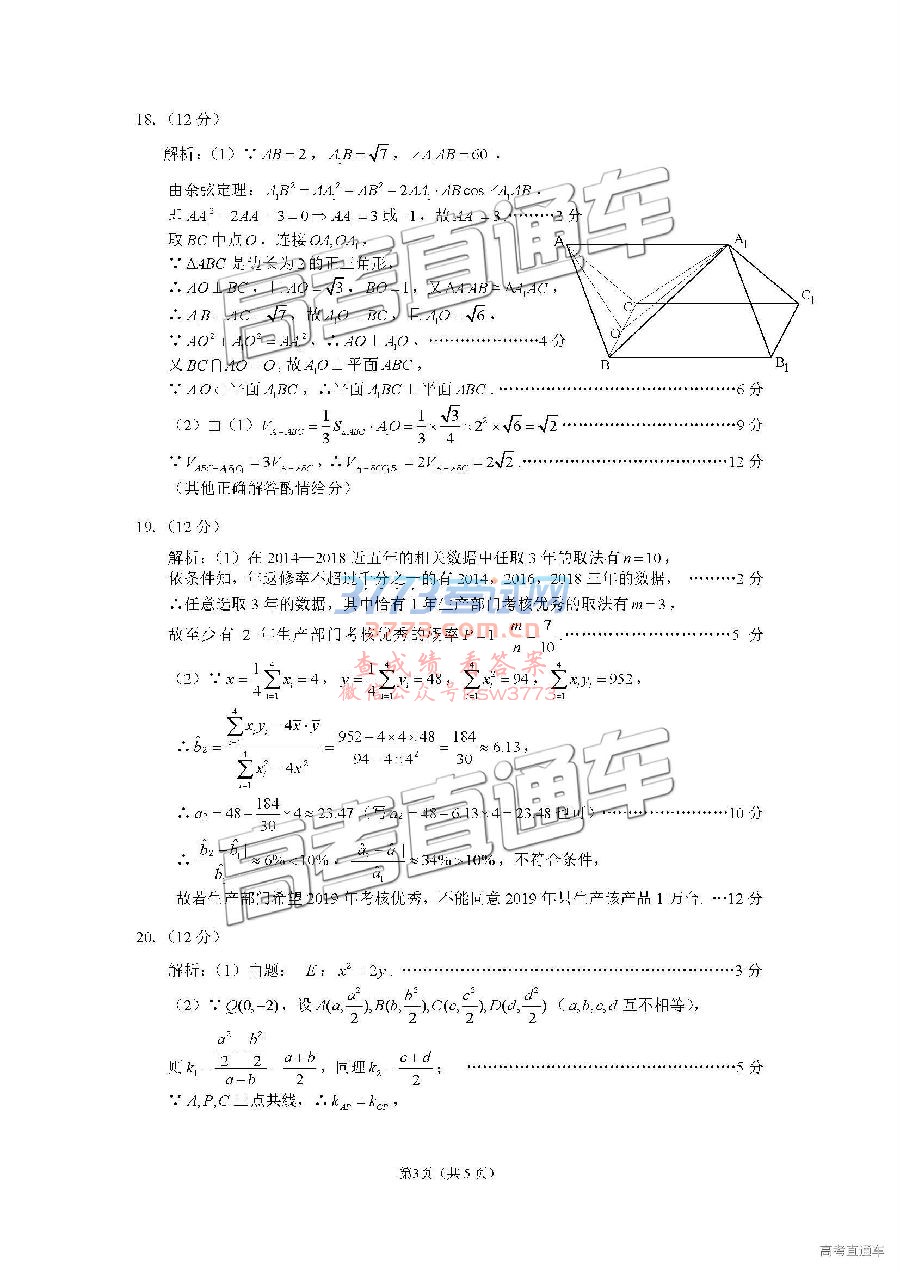 18. （12 分）
解析：（1）∵ AB=2，A₁B=√7，∠A₁AB=60
由余弦定理：A₁B²=AA₁²+AB²−2AA₁·AB cos∠A₁AB，
AA₁²−2AA₁−3=0⇒AA₁=3或−1，故AA₁=3.………2分
取 BC 中点 O，连接 OA, OA₁，
∵ ΔABC 是边长为 2 的正三角形，
∴ AO⊥BC，且 AO=√3，BO=1，又ΔA₁AB≅ΔA₁AC，
∴ A₁B=A₁C=√7，故A₁O⊥BC，且A₁O=√6，
∵ AO²+A₁O²=AA₁²，∴ AO⊥A₁O，…………………4 分
又 BC∩AO=O，故 A₁O⊥平面 ABC，
∵ A₁O⊂平面 A₁BC，∴平面 A₁BC⊥平面 ABC.………………………………………6 分
A
A₁
C
C₁
O
B
B₁
（2）由（1）V_{A₁−ABC}=1/3 S_{△ABC}·A₁O=1/3×√3/4×2²×√6=√2……………………………9分
∵ V_{ABC−A₁B₁C₁}=3V_{A₁−ABC}，∴ V_{A₁−BCC₁B₁}=2V_{A₁−ABC}=2√2.…………………………………12分
（其他正确解答酌情给分）
19. （12 分）
解析：（1）在 2014—2018 近五年的相关数据中任取 3 年的取法有 n=10，
依条件知，年返修率不超过千分之一的有 2014，2016，2018 三年的数据， ………2分
∴任意选取 3 年的数据，其中恰有 1 年生产部门考核优秀的取法有 m=3，
故至少有 2 年生产部门考核优秀的概率 P=1−m/n=7/10.…………………………5 分
（2）∵ x̄=1/4 ∑_{i=1}^{4} x_i=4，ȳ=1/4 ∑_{i=1}^{4} y_i=48，∑_{i=1}^{4} x_i²=94，∑_{i=1}^{4} x_i y_i=952，
∴ b̂₂=(∑_{i=1}^{4} x_i y_i−4x̄·ȳ)/(∑_{i=1}^{4} x_i²−4x̄²)=(952−4×4×48)/(94−4×4²)=184/30≈6.13，
∴ â₂=48−184/30×4≈23.47（写 â₂=48−6.13×4=23.48 也可）……………………10 分
∴ |b̂₂−b̂₁|/b̂₁≈6%<10%，|â₂−â₁|/â₁≈34%>10%，不符合条件，
故若生产部门希望 2019 年考核优秀，不能同意 2019 年只生产该产品 1 万台. …12 分
20. （12 分）
解析：（1）由题： E：x²=2y. ………………………………………………………3 分
（2）∵ Q(0,−2)，设 A(a,a²/2),B(b,b²/2),C(c,c²/2),D(d,d²/2)（a,b,c,d 互不相等），
则 k₁=(a²/2−b²/2)/(a−b)=(a+b)/2，同理 k₂=(c+d)/2； ……………………………………………5 分
∵ A,P,C 三点共线，∴ k_{AP}=k_{CP}，
第3页（共 5 页）
高考直通车
高考直通车
3773考试网
www.3773.com.cn
查成绩 看答案
微信公众号hsw3773
高考直通车